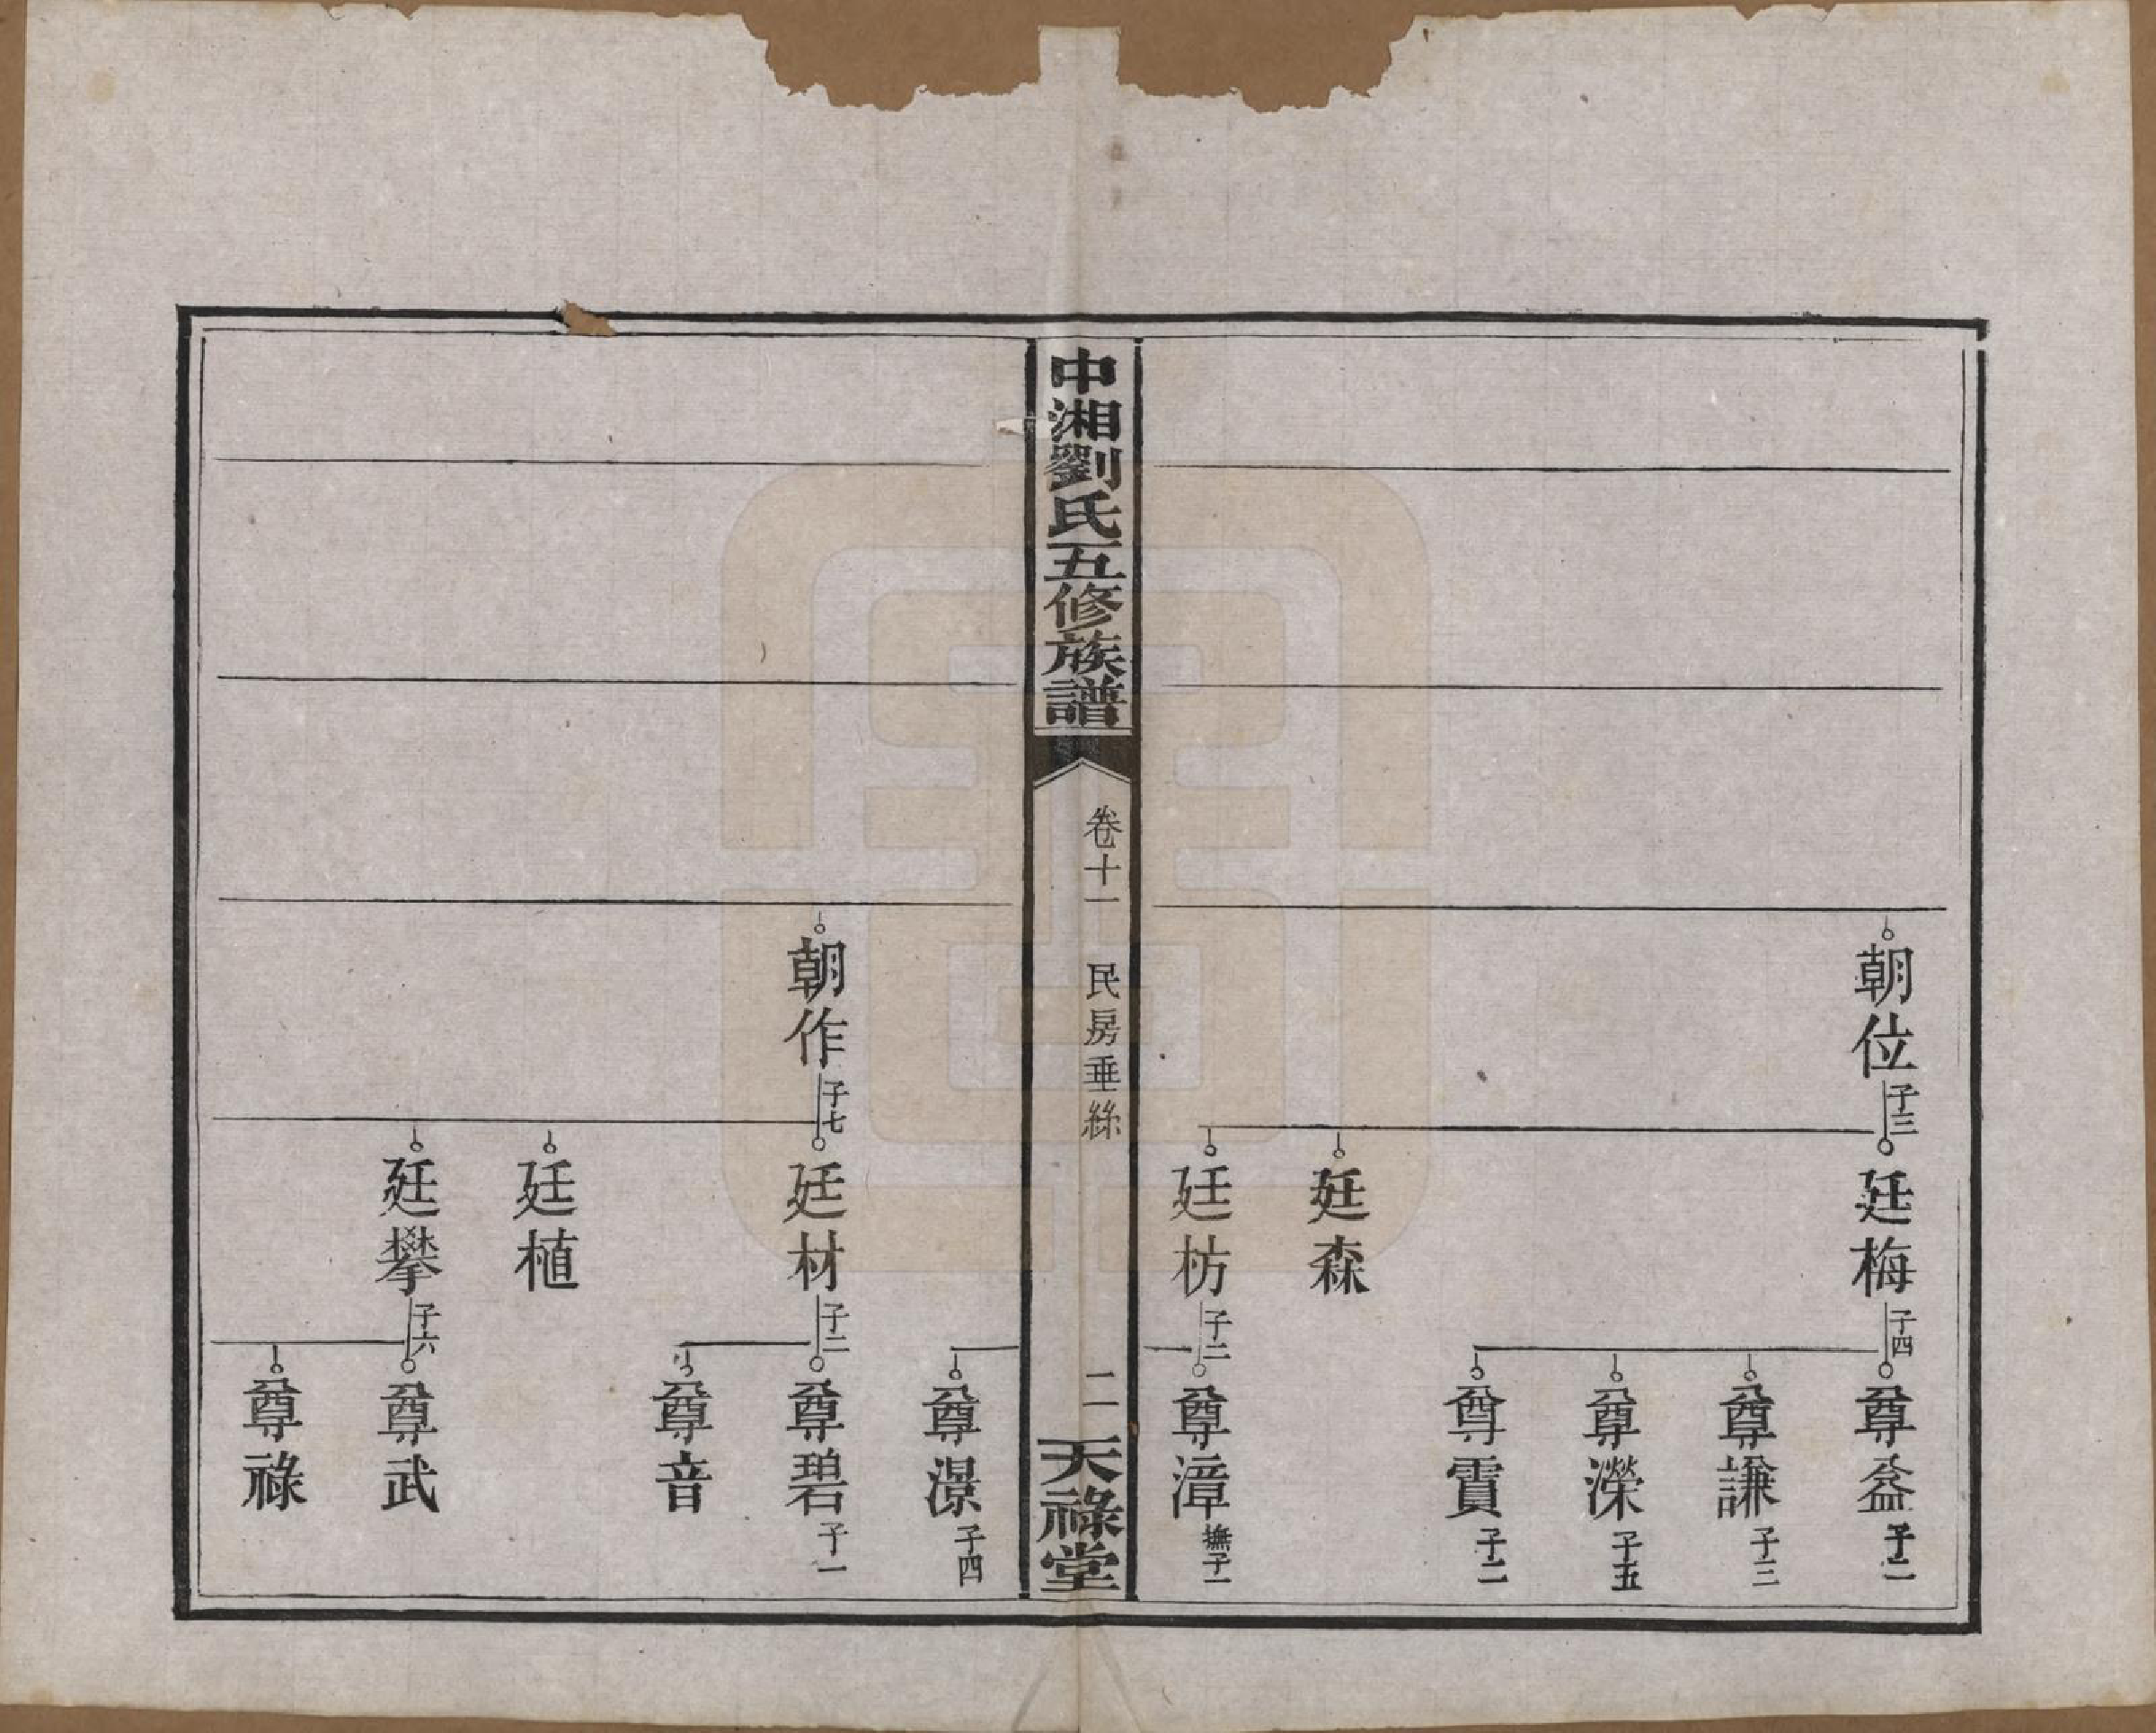 朝位 子三
廷梅 子四
尊益 子二
尊謙 子三
尊濚 子五
尊賓 子二
廷森
廷枋 子二
尊漳 撫子一
中湘劉氏五修族譜
卷十一
民房垂絲
二
天祿堂
尊澋 子四
朝作 子七
廷材 子二
尊碧 子一
尊音
廷植
廷攀 子六
尊武
尊祿